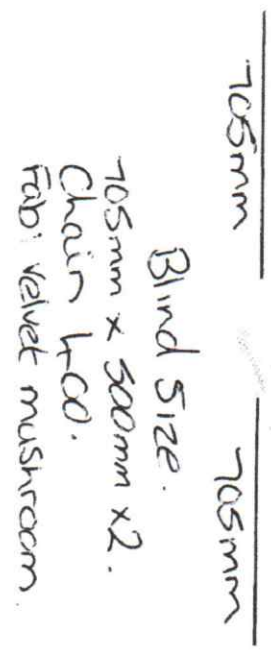 705mm
705mm
Blind Size.
705mm x 500mm x2.
Chain 400.
Fab: Velvet mushroom.